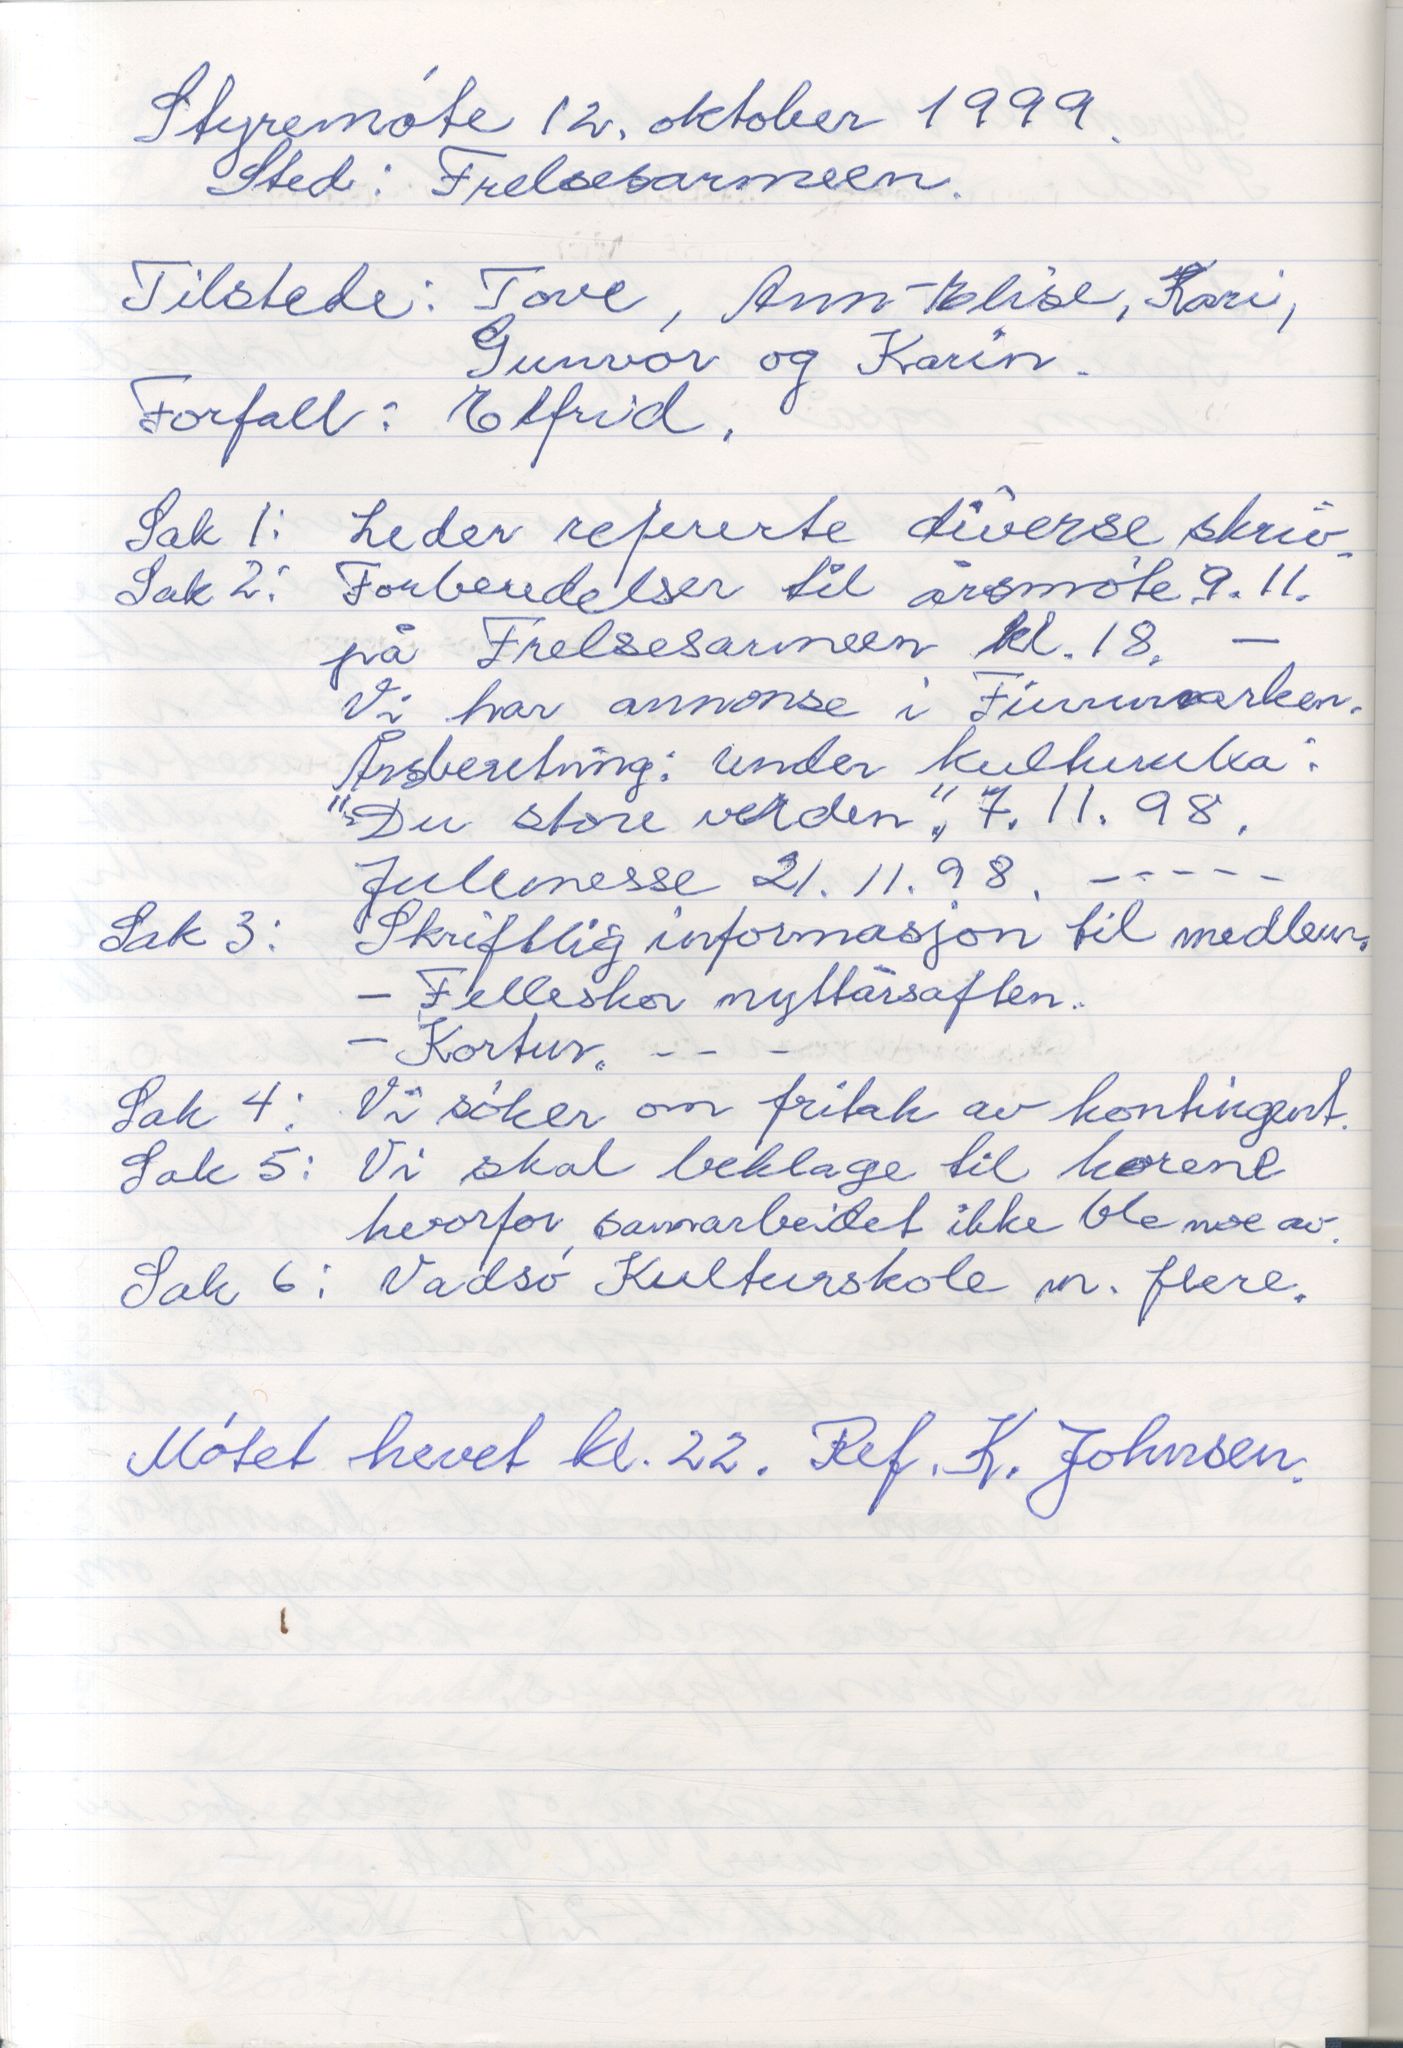 Styremóte 12. oktober 1999.
Sted: Frelsesarmeen.
Tilstede: Tove, Ann-Elise, Kari,
Gunvor og Karin.
Forfall: Elfrid.
Sak 1: Leder refererte diverse skriv.
Sak 2: Forberedelser til årsmóte 9.11.
på Frelsesarmeen kl. 18. —
Vi har annonse i Finnmarken.
Årsberetning: under kulturuka:
"Du store verden", 7.11.98.
Julemesse 21.11.98. - - - - -
Sak 3: Skriftlig informasjon til medlem.
- Felleskor nyttårsaften.
- Kortur. - - -
Sak 4: Vi sóker om fritak av kontingent.
Sak 5: Vi skal beklage til korene
hvorfor samarbeidet ikke ble noe av.
Sak 6: Vadsó Kulturskole m. flere.
Mótet hevet kl. 22. Ref. K. Johnsen.